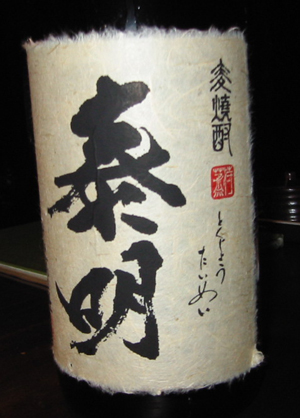 麦焼酎
とくじょう
たいめい
泰明